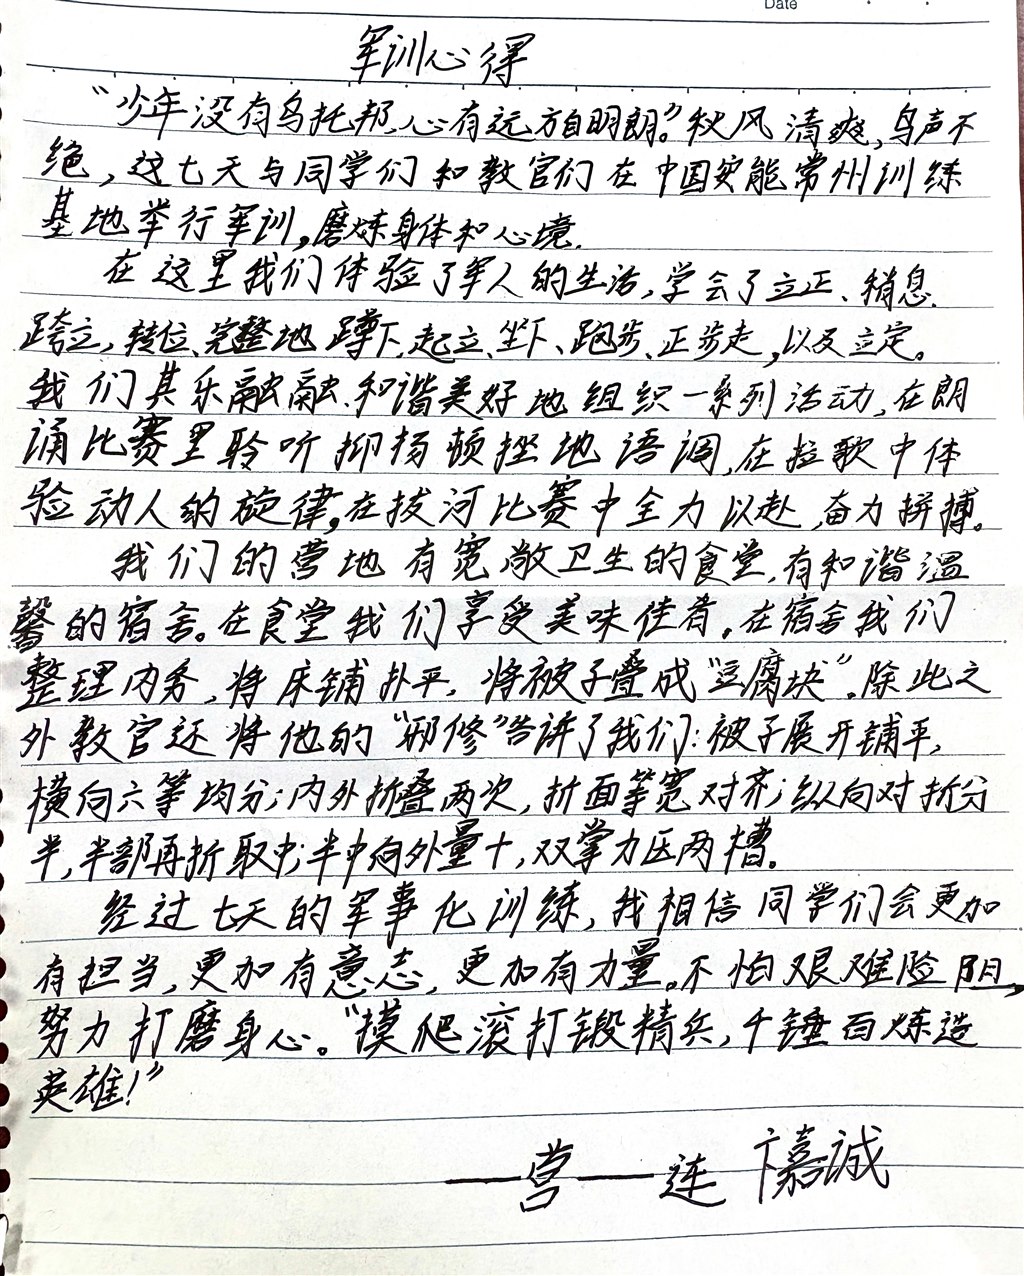 Date
军训心得
“少年没有乌托邦,心有远方自明朗。”秋风清爽,鸟声不
绝,这七天与同学们和教官们在中国安能常州训练
基地举行军训,磨炼身体和心境.
在这里我们体验了军人的生活,学会了立正、稍息、
跨立,转位、完整地蹲下、起立、坐下、跑步、正步走,以及立定。
我们其乐融融.和谐美好地组织一系列活动,在朗
诵比赛里聆听抑扬顿挫地语调,在拉歌中体
验动人的旋律,在拔河比赛中全力以赴,奋力拼搏。
我们的营地有宽敞卫生的食堂,有和谐温
馨的宿舍。在食堂我们享受美味佳肴,在宿舍我们
整理内务,将床铺扑平,将被子叠成“豆腐块”.除此之
外教官还将他的“邪修”告诉了我们:被子展开铺平,
横向六等均分;内外折叠两次,折面等宽对齐;纵向对折分
半,半部再折取中;半中向外量十,双掌力压两槽。
经过七天的军事化训练,我相信同学们会更加
有担当,更加有意志,更加有力量。不怕艰难险阻,
努力打磨身心。“摸爬滚打锻精兵,千锤百炼造
英雄!”
一营一连 卞嘉诚